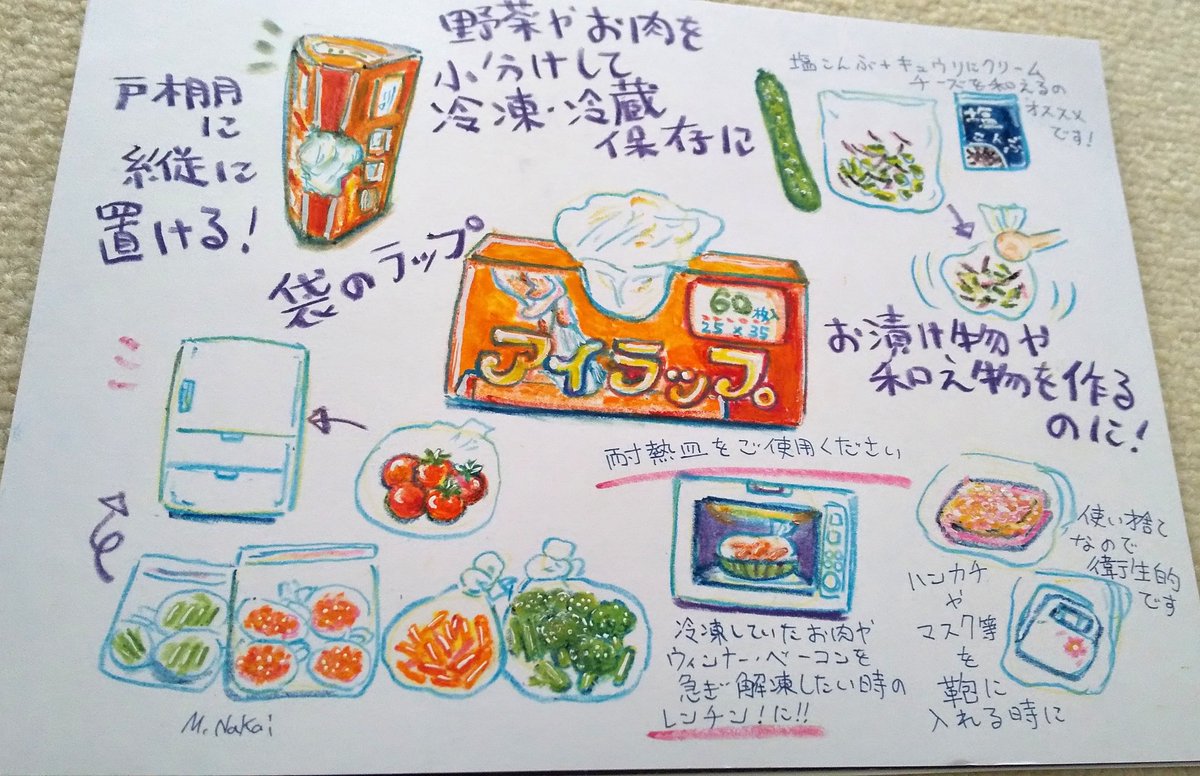 戸棚
に
縦に
置ける!
野菜やお肉を
小分けして
冷凍・冷蔵
保存に
塩こんぶ+キュウリにクリーム
チーズを和えるの
オススメ
です!
塩
こんぶ
袋のラップ
60枚入
25×35
アイラップ。
お漬け物や
和え物を作る
のに!
耐熱皿をご使用ください
冷凍していたお肉や
ウィンナー・ベーコンを
急ぎ解凍したい時の
レンチン!に!!
使い捨て
なので
衛生的
です
ハンカチ
や
マスク等
を
鞄に
入れる時に
M.Nakai